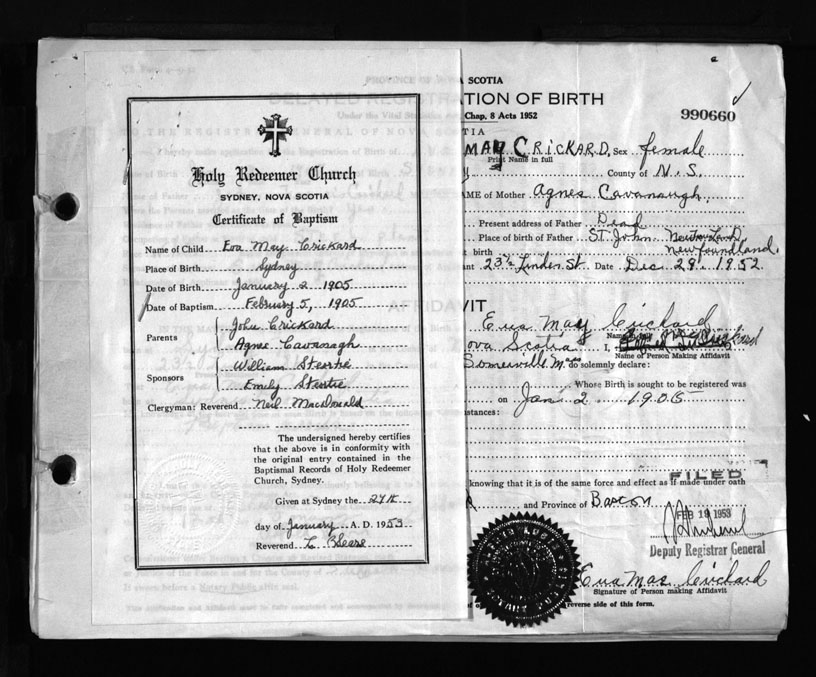 Holy Redeemer Church
SYDNEY, NOVA SCOTIA
Certificate of Baptism
Name of Child Eva May Crickard
Place of Birth Sydney
Date of Birth January 2 1905
Date of Baptism February 5, 1905
Parents John Crickard
Agnes Cavanagh
Sponsors William
Emily
Clergyman: Reverend Neil MacDonald
The undersigned hereby certifies
that the above is in conformity with
the original entry contained in the
Baptismal Records of Holy Redeemer
Church, Sydney.
Given at Sydney the 27th
day of January A. D. 1953
Reverend
A SCOTIA
TION OF BIRTH
Chap, 8 Acts 1952
990660
TIA
MAE CRICKARD, Sex female
Print Name in full
County of N.S.
AME of Mother Agnes Cavanaugh
Present address of Father Dead
Place of Birth of Father ST. John Newfoundland
t birth Newfoundland
ant 23½ Linden St. Date Dec 29. 1952
VIT
Eva May Crickard
ova Scotia I,
Name of Person Making Affidavit
Somerville Mass do solemnly declare:
Whose Birth is sought to be registered was
on Jan 2 1905
stances:
knowing that it is of the same force and effect as if made under oath
FILED
and Province of
FEB 19 1953
Deputy Registrar General
Eva Mae Crickard
Signature of Person making Affidavit
reverse side of this form.